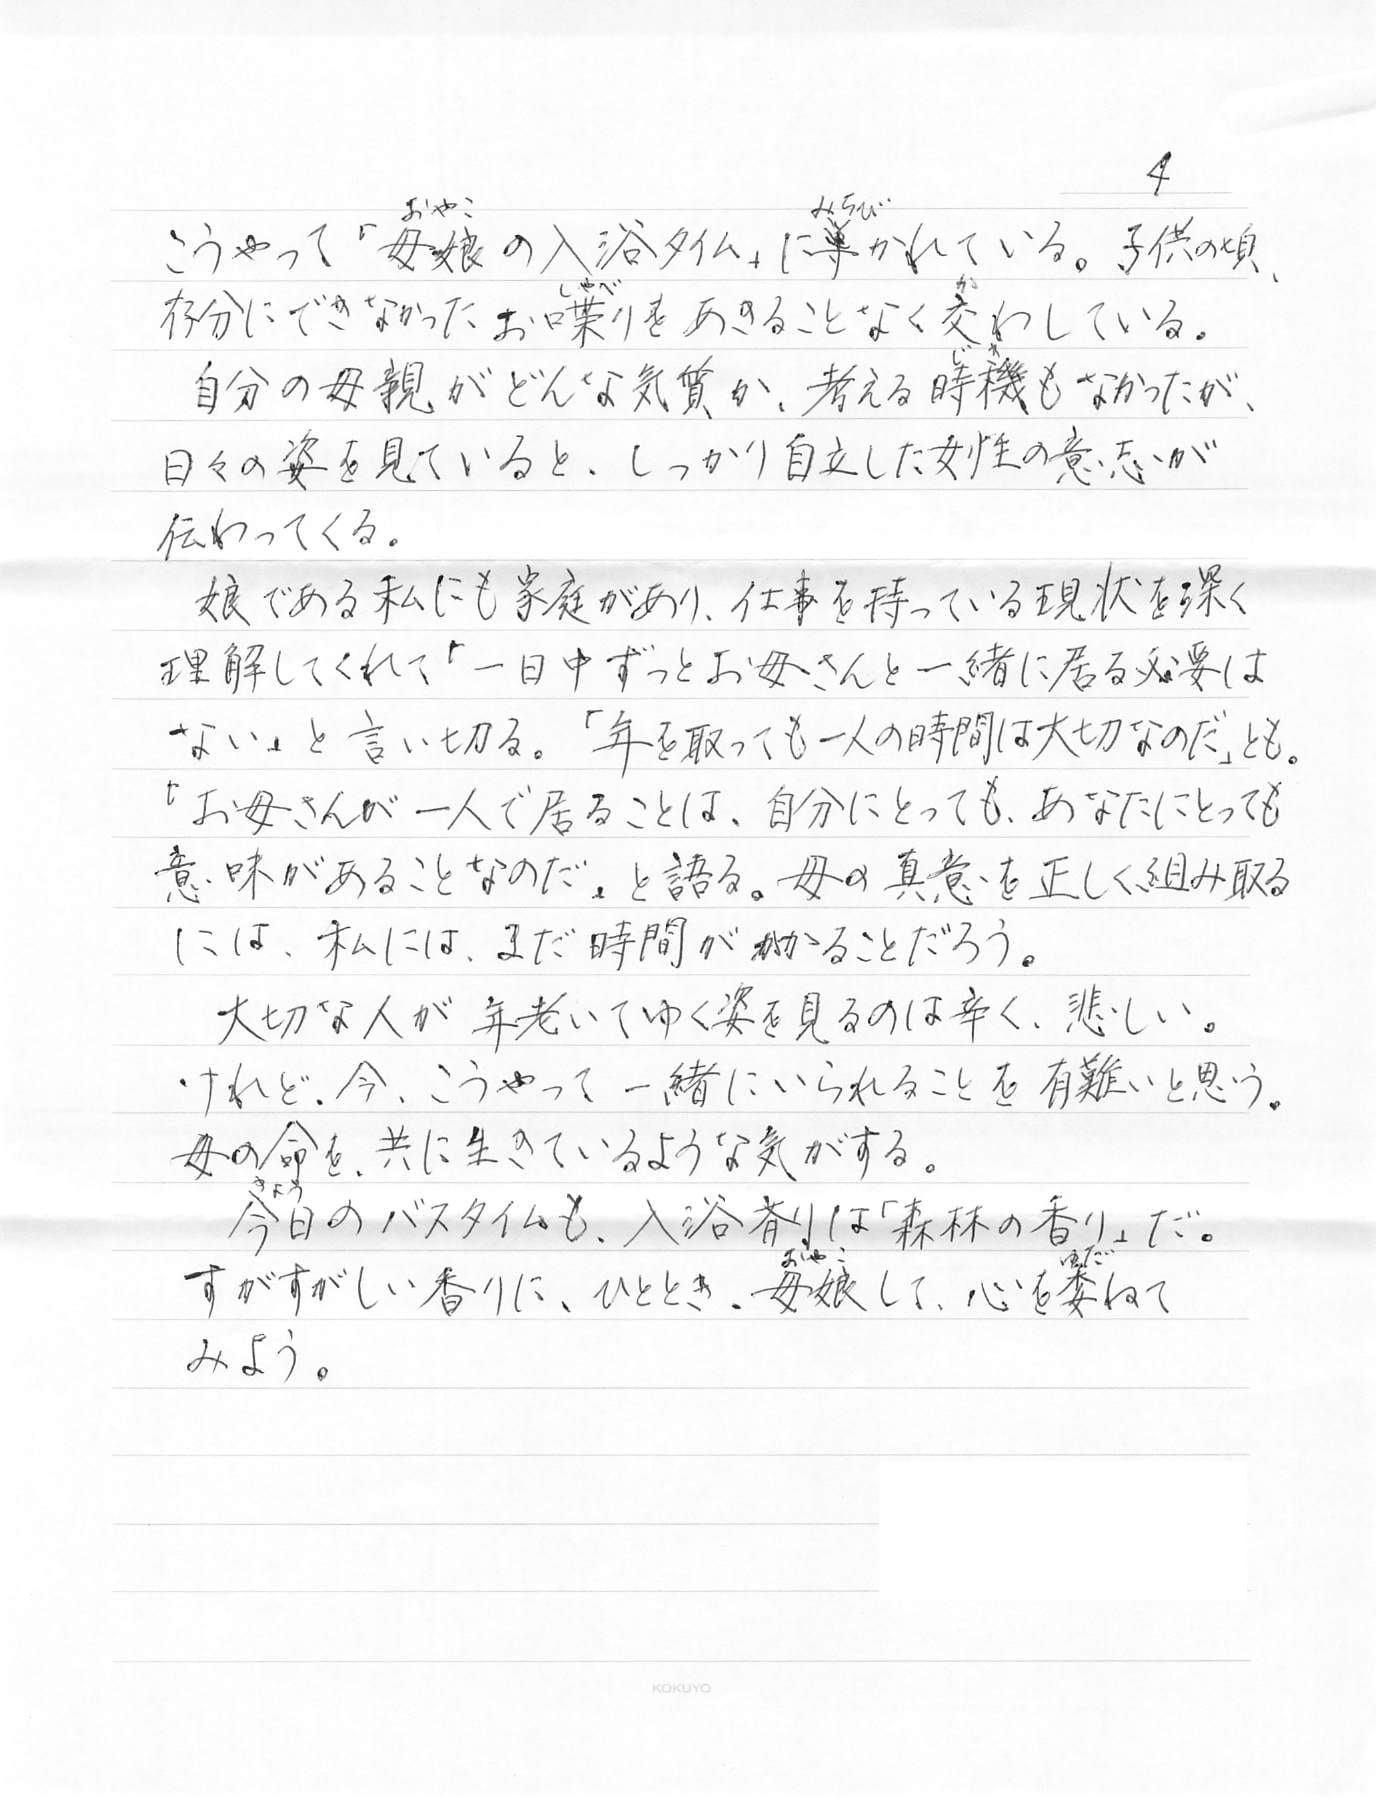 4
こうやって「母娘の入浴タイム」に導かれている。子供の頃、
存分にできなかったお喋りをあきることなく交わしている。
自分の母親がどんな気質か、考える時機もなかったが、
日々の姿を見ていると、しっかり自立した女性の意志が
伝わってくる。
娘である私にも家庭があり、仕事を持っている現状を深く
理解してくれて「一日中ずっとお母さんと一緒に居る必要は
ない」と言い切る。「年を取っても一人の時間は大切なのだ」とも。
「お母さんが一人で居ることは、自分にとっても、あなたにとっても
意味があることなのだ」と語る。母の真意を正しく組み取る
には、私には、まだ時間がかかることだろう。
大切な人が年老いてゆく姿を見るのは辛く、悲しい。
けれど、今、こうやって一緒にいられることを有難いと思う。
母の命を、共に生きているような気がする。
今日のバスタイムも、入浴剤は「森林の香り」だ。
すがすがしい香りに、ひととき、母娘して、心を委ねて
みよう。
KOKUYO